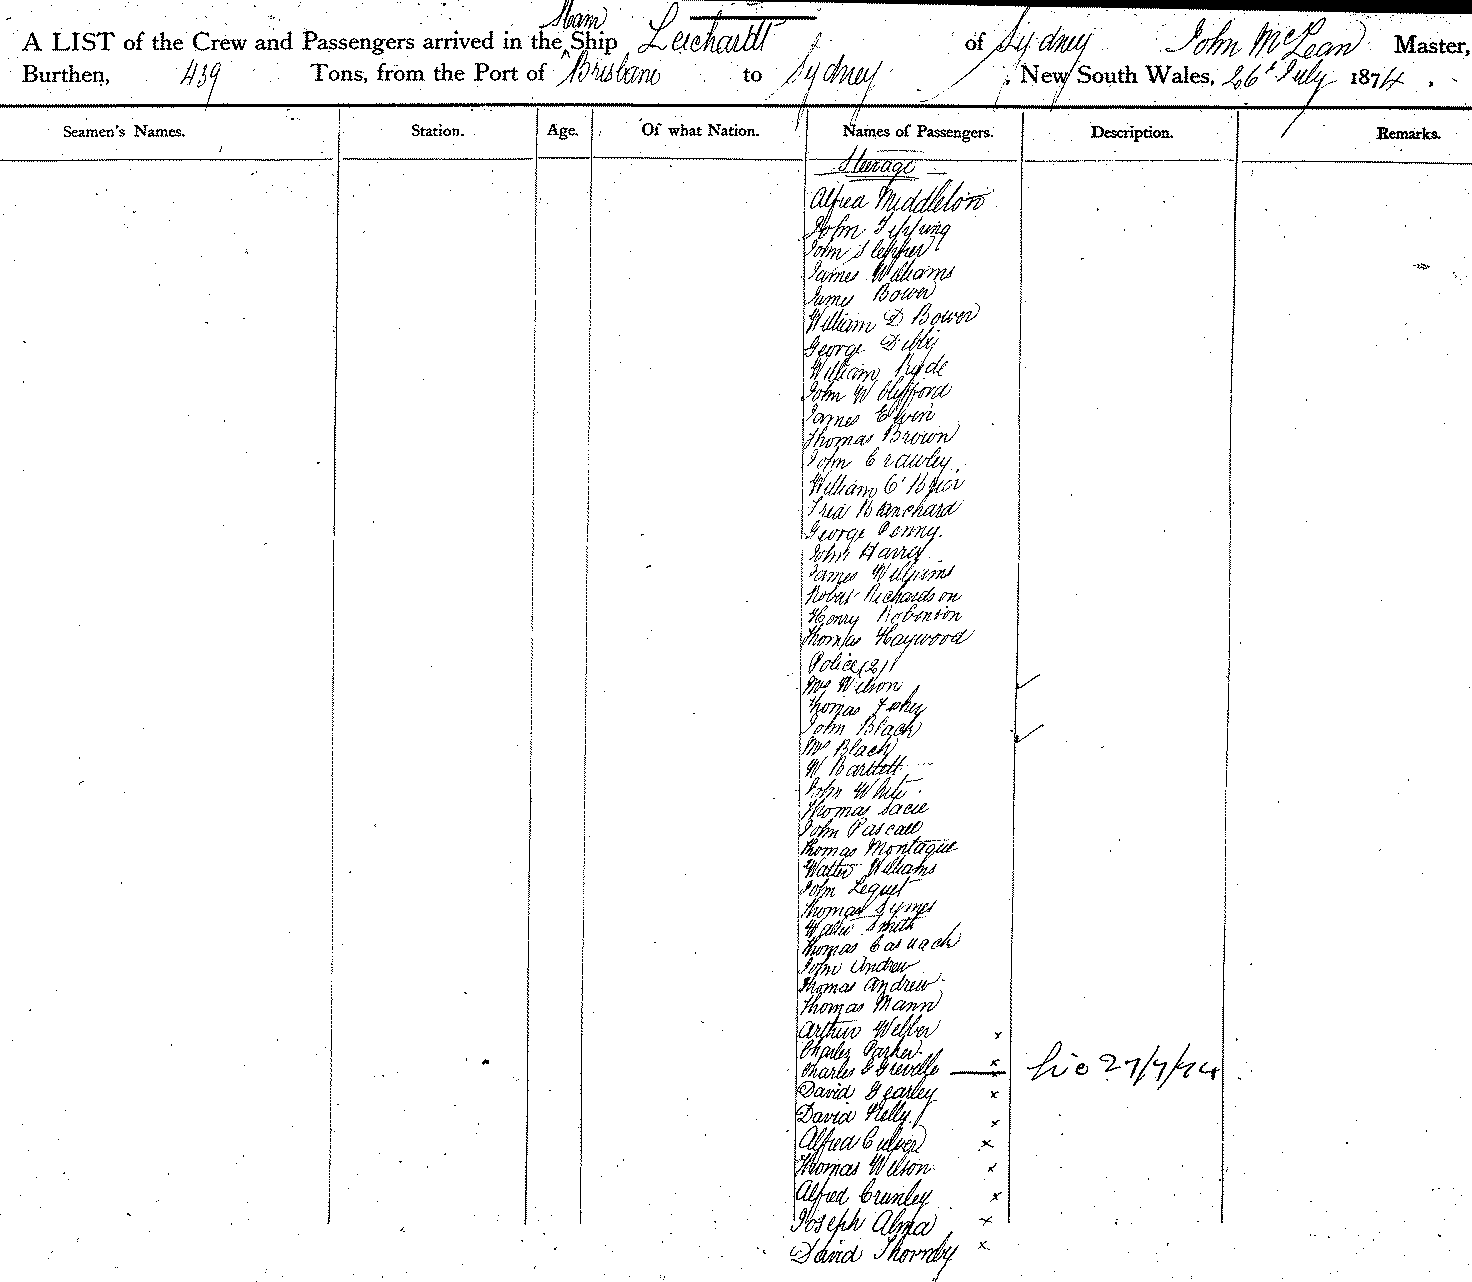 A LIST of the Crew and Passengers arrived in the Steam Ship Leichardt of Sydney John McLean Master,
Burthen, 439 Tons, from the Port of Brisbane to Sydney, New South Wales, 26th July 1874.
Seamen's Names. Station. Age. Of what Nation. Names of Passengers. Description. Remarks.
Steerage
Alfred Middleton
John
John
James Williams
James Bower
William D Bower
George Dibby
William Hyde
John W Clifford
James Elvin
Thomas Brown
John Crawley
William
Fred Blanchard
George Penny
John Harry
James Williams
Robert Richardson
Henry Robinson
Thomas Haywood
Police (2)
Mrs Wilson
Thomas
John Black
Mrs Black
W Bartlett
John White
Thomas
John Pascall
Thomas Montague
Walter Williams
John
Thomas Symes
Walter Smith
Thomas
John Andrew
Thomas Andrew
Thomas Mann
Arthur Webber x
Charles Parker x
Charles G Greville x 27/7/74
David Gearley x
David Kelly x
Alfred Culver x
Thomas Wilson x
Alfred Crumley x
Joseph Alma x
David Thornby x